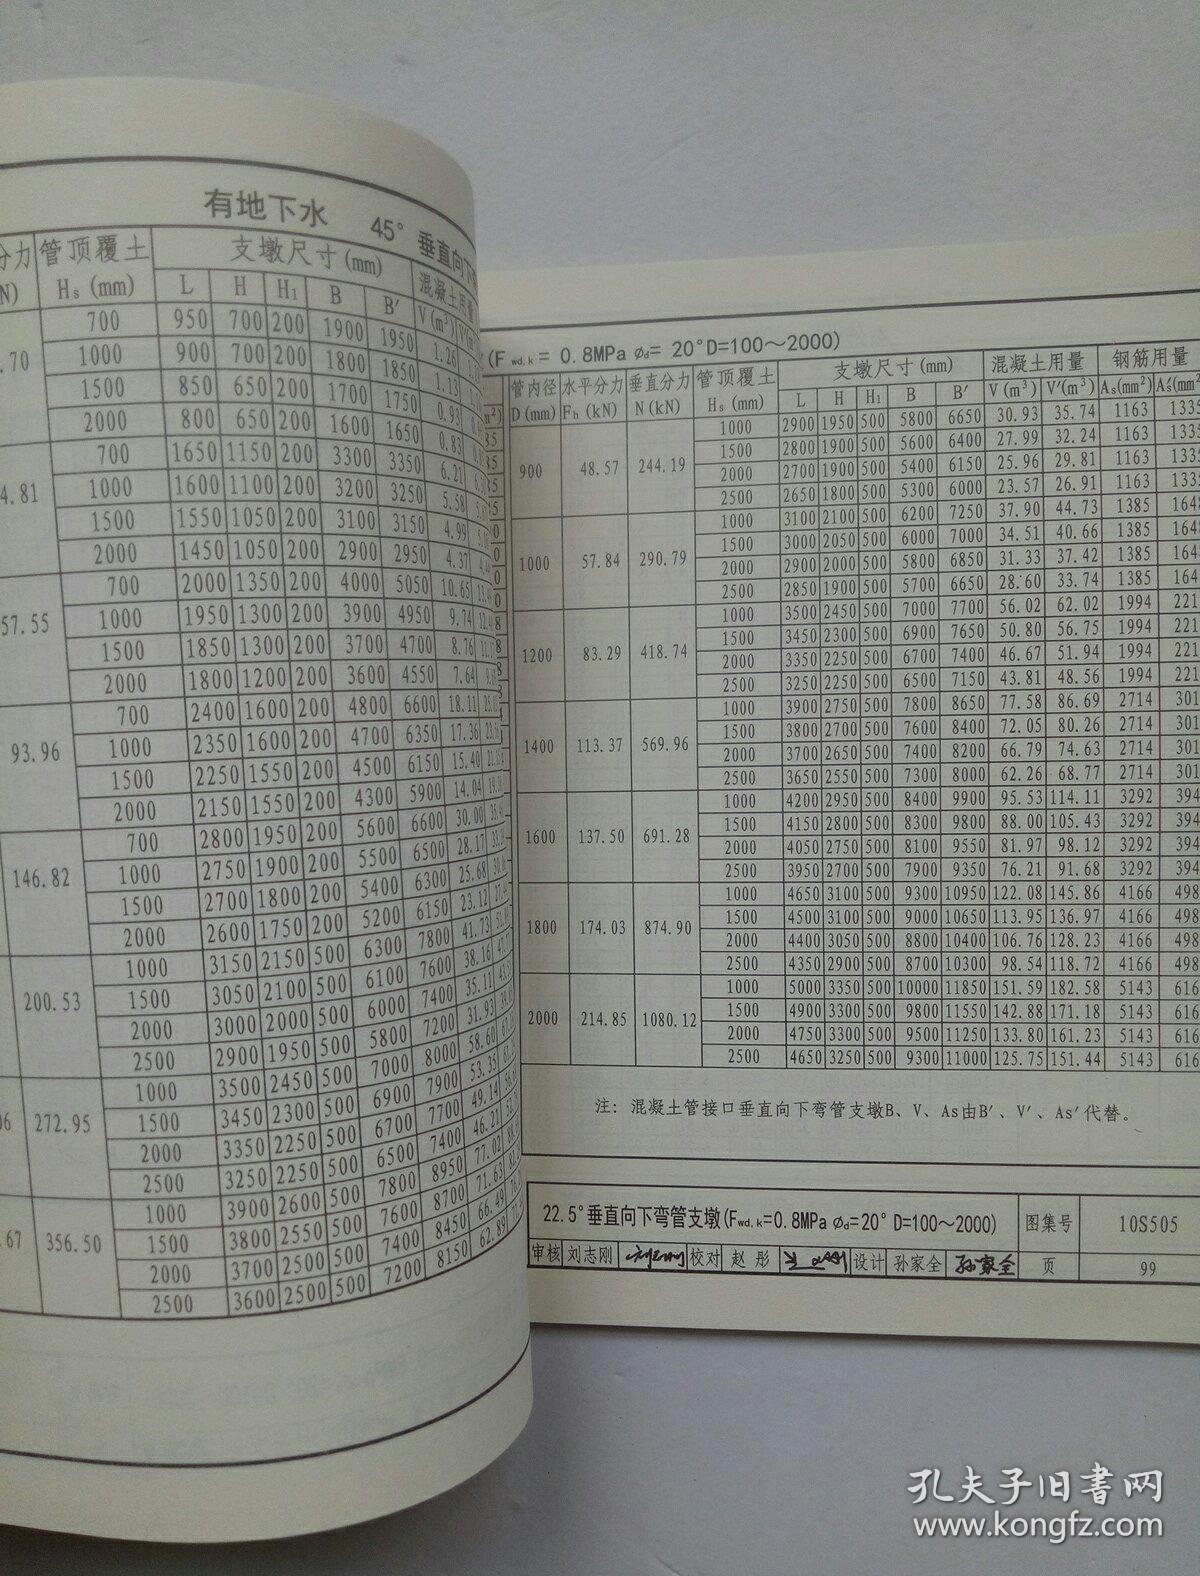 有地下水 45° 垂直向下
分力 管顶覆土 支墩尺寸(mm) 混凝土用量
N) Hs (mm) L H H1 B B′ V(m³)
.70 700 950 700 200 1900 1950 1.26
1000 900 700 200 1800 1850 1.13
1500 850 650 200 1700 1750 0.93
2000 800 650 200 1600 1650 0.83
4.81 700 1650 1150 200 3300 3350 6.21
1000 1600 1100 200 3200 3250 5.58
1500 1550 1050 200 3100 3150 4.99
2000 1450 1050 200 2900 2950 4.37
57.55 700 2000 1350 200 4000 5050 10.65
1000 1950 1300 200 3900 4950 9.74
1500 1850 1300 200 3700 4700 8.76
2000 1800 1200 200 3600 4550 7.64
93.96 700 2400 1600 200 4800 6600 18.11
1000 2350 1600 200 4700 6350 17.36
1500 2250 1550 200 4500 6150 15.40
2000 2150 1550 200 4300 5900 14.04
146.82 700 2800 1950 200 5600 6600 30.00
1000 2750 1900 200 5500 6500 28.17
1500 2700 1800 200 5400 6300 25.68
2000 2600 1750 200 5200 6150 23.12
200.53 1000 3150 2150 500 6300 7800 41.73
1500 3050 2100 500 6100 7600 38.16
2000 3000 2000 500 6000 7400 35.11
2500 2900 1950 500 5800 7200 31.93
06 272.95 1000 3500 2450 500 7000 8000 58.60
1500 3450 2300 500 6900 7900 53.35
2000 3350 2250 500 6700 7700 49.14
2500 3250 2250 500 6500 7400 46.21
.67 356.50 1000 3900 2600 500 7800 8950 77.02
1500 3800 2550 500 7600 8700 71.63
2000 3700 2500 500 7400 8450 66.49
2500 3600 2500 500 7200 8150 62.89
(Fwd,k= 0.8MPa Ød= 20°D=100～2000)
管内径 水平分力 垂直分力 管顶覆土 支墩尺寸(mm) 混凝土用量 钢筋用量
D(mm) Fh(kN) N(kN) Hs(mm) L H H1 B B′ V(m³) V′(m³) As(mm²) As′(mm²
900 48.57 244.19 1000 2900 1950 500 5800 6650 30.93 35.74 1163 1335
1500 2800 1900 500 5600 6400 27.99 32.24 1163 1335
2000 2700 1900 500 5400 6150 25.96 29.81 1163 1335
2500 2650 1800 500 5300 6000 23.57 26.91 1163 1335
1000 57.84 290.79 1000 3100 2100 500 6200 7250 37.90 44.73 1385 164
1500 3000 2050 500 6000 7000 34.51 40.66 1385 164
2000 2900 2000 500 5800 6850 31.33 37.42 1385 164
2500 2850 1900 500 5700 6650 28.60 33.74 1385 164
1200 83.29 418.74 1000 3500 2450 500 7000 7700 56.02 62.02 1994 221
1500 3450 2300 500 6900 7650 50.80 56.75 1994 221
2000 3350 2250 500 6700 7400 46.67 51.94 1994 221
2500 3250 2250 500 6500 7150 43.81 48.56 1994 221
1400 113.37 569.96 1000 3900 2750 500 7800 8650 77.58 86.69 2714 301
1500 3800 2700 500 7600 8400 72.05 80.26 2714 301
2000 3700 2650 500 7400 8200 66.79 74.63 2714 301
2500 3650 2550 500 7300 8000 62.26 68.77 2714 301
1600 137.50 691.28 1000 4200 2950 500 8400 9900 95.53 114.11 3292 394
1500 4150 2800 500 8300 9800 88.00 105.43 3292 394
2000 4050 2750 500 8100 9550 81.97 98.12 3292 394
2500 3950 2700 500 7900 9350 76.21 91.68 3292 394
1800 174.03 874.90 1000 4650 3100 500 9300 10950 122.08 145.86 4166 498
1500 4500 3100 500 9000 10650 113.95 136.97 4166 498
2000 4400 3050 500 8800 10400 106.76 128.23 4166 498
2500 4350 2900 500 8700 10300 98.54 118.72 4166 498
2000 214.85 1080.12 1000 5000 3350 500 10000 11850 151.59 182.58 5143 616
1500 4900 3300 500 9800 11550 142.88 171.18 5143 616
2000 4750 3300 500 9500 11250 133.80 161.23 5143 616
2500 4650 3250 500 9300 11000 125.75 151.44 5143 616
注: 混凝土管接口垂直向下弯管支墩B、V、As由B′、V′、As′代替。
22.5°垂直向下弯管支墩(Fwd,k=0.8MPa Ød=20° D=100～2000) 图集号 10S505
审核 刘志刚 校对 赵彤 设计 孙家全 孙家全 页 99
孔夫子旧书网
www.kongfz.com